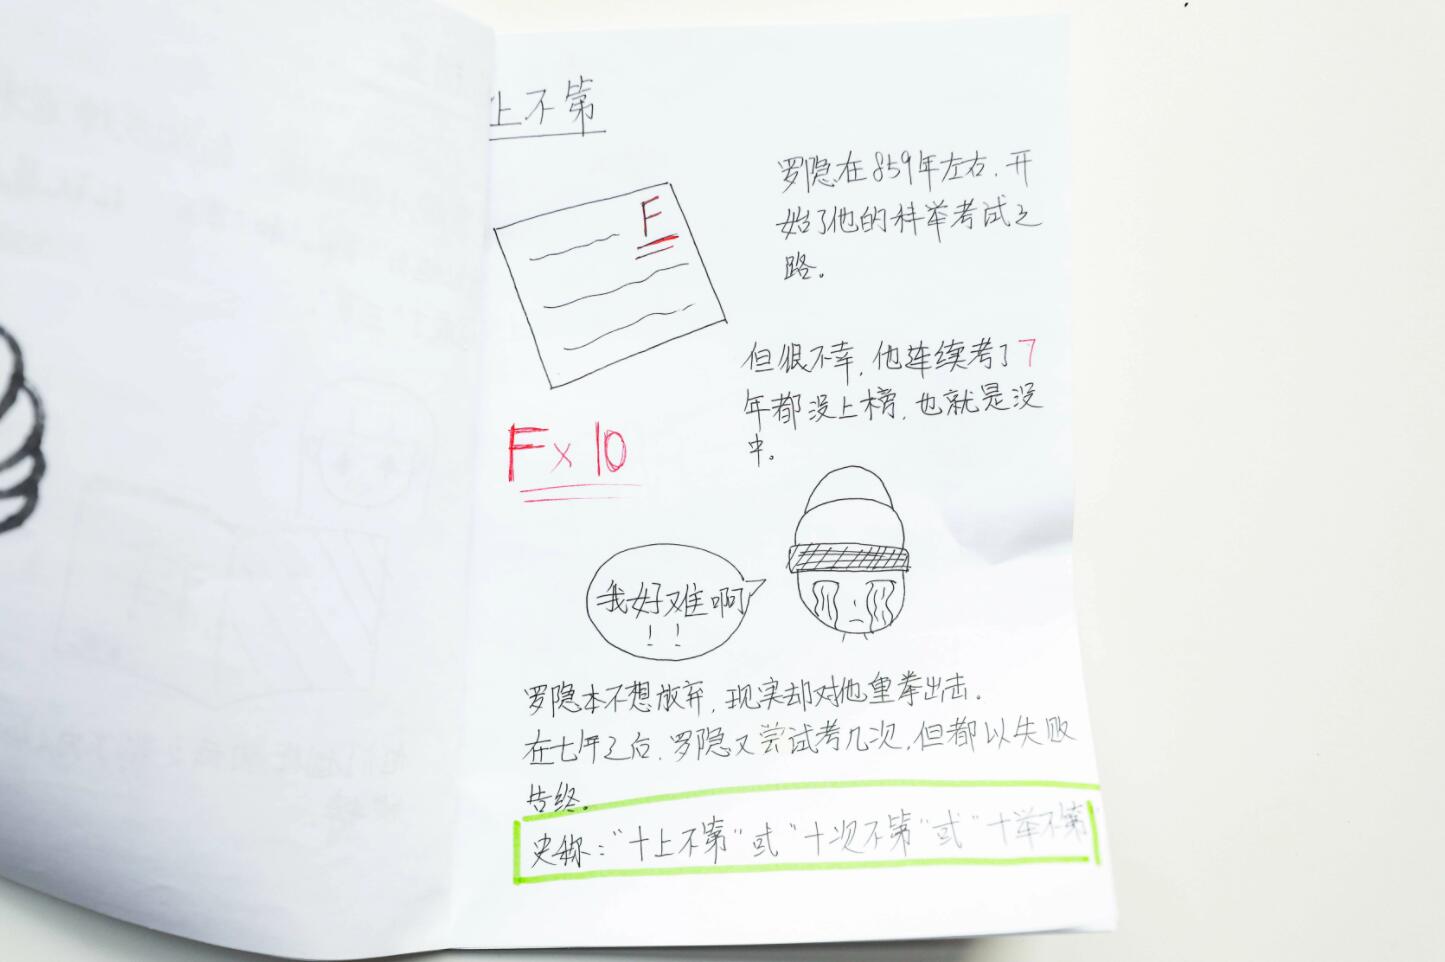 上不第
F
罗隐在859年左右，开
始了他的科举考试之
路。
但很不幸，他连续考了7
年都没上榜，也就是没
中。
F×10
我好难啊
！！
罗隐本不想放弃，现实却对他重拳出击。
在七年之后，罗隐又尝试考几次，但都以失败
告终。
史称：“十上不第”或“十次不第”或“十举不第”